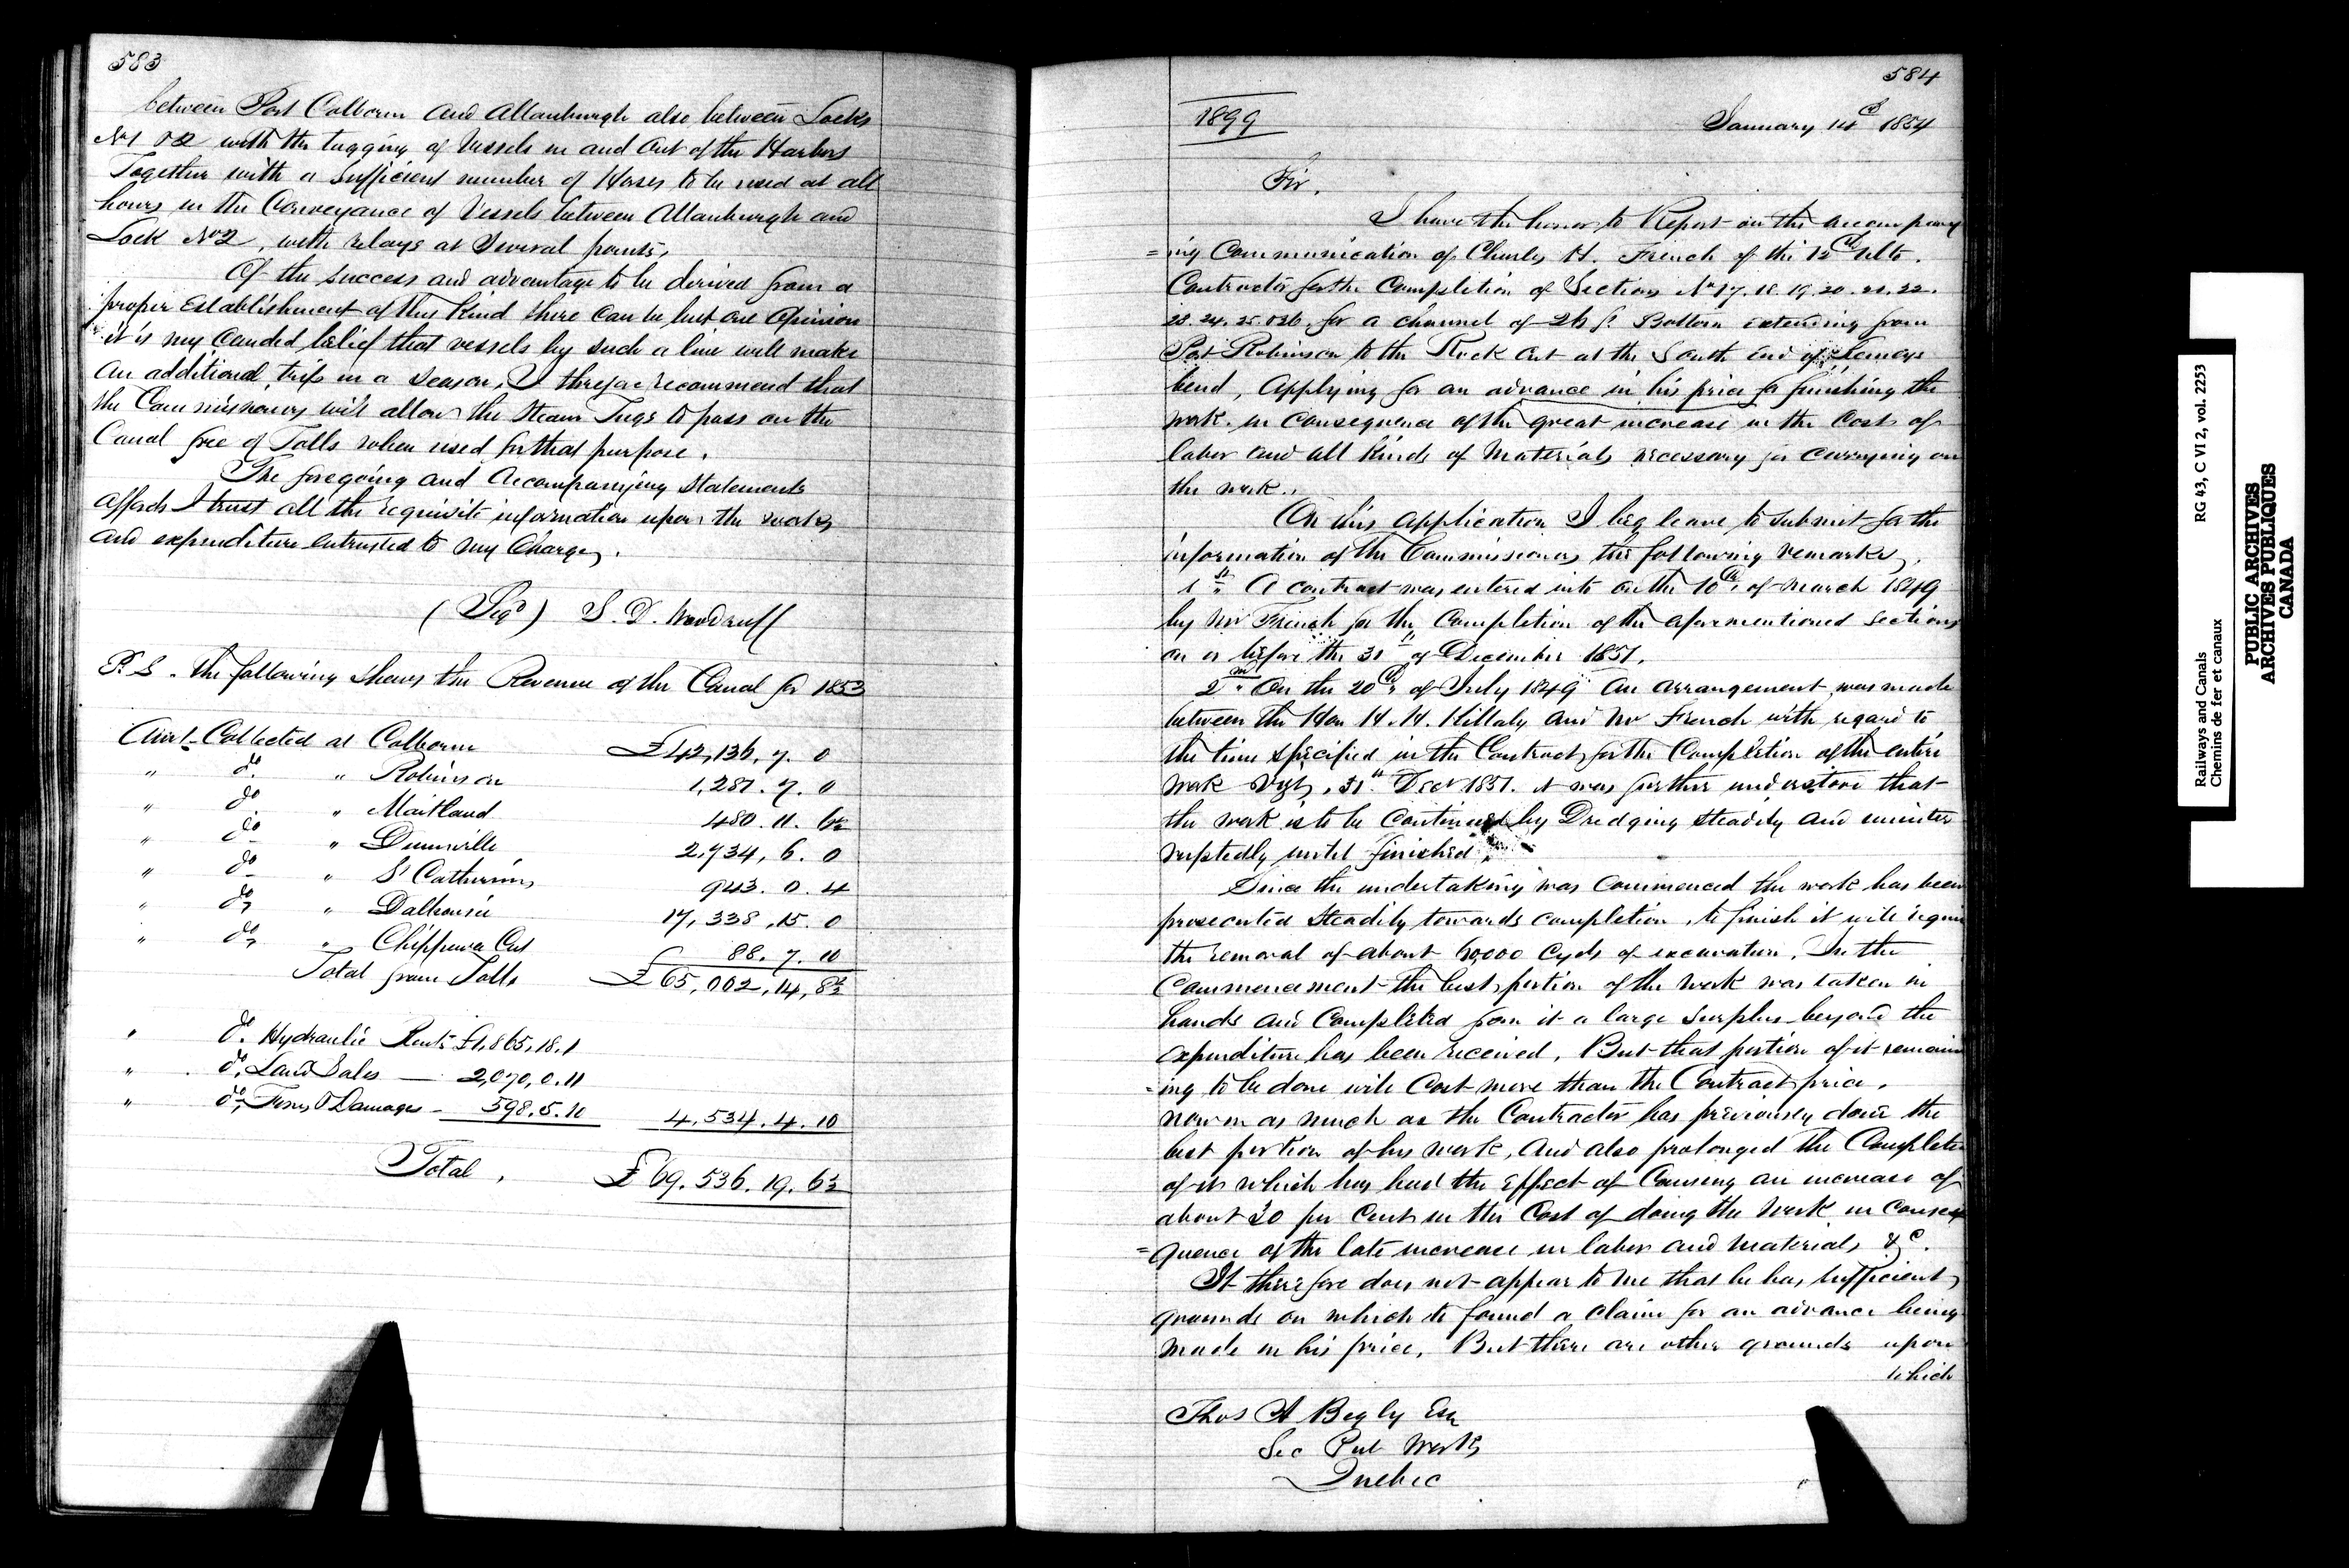 583
between Port Colborne and Allanburgh also between Locks
No 1 & 2 with the tugging of Vessels in and out of the Harbors
Together with a sufficient number of Horses to be used at all
hours in the Conveyance of Vessels between Allanburgh and
Lock No 2, with relays at several points,
Of the success and advantage to be derived from a
proper Establishment of this Kind there can be but one Opinion
it is my Candid belief that vessels by such a line will make
an additional trip in a season, I therefore recommend that
the Commissioners will allow the Steam Tugs to pass on the
Canal free of Tolls when used for that purpose.
The foregoing and Accompanying Statements
affords I trust all the requisite information upon the works
and expenditure entrusted to my Charge,.
(Sigd) S. D. Woodruff
P.S. The following Shews the Revenue of the Canal for 1853
Amt Collected at Colborne £42,136,7.0
" do " Robinson 1,281.7.0
" do " Maitland 480.11.6½
" do " Dunnville 2,734,6.0
" do " St Catherines 943.0.4
" do " Dalhousie 17,338,15.0
" do " Chippewa Cut 88.7.10
Total from Tolls £65,002,14,8½
" do. Hydraulic Rents £1,865,18.1
" do. Land Sales — 2,070,0.11
" do, Fines & Damages — 598.5.10 4,534.4.10
Total, £69.536.19.6½
584
1899
January 14th 1854
Sir,
I have the honor to Report on the accompany
=ing Communication of Charles H. French of the 12th ulto.
Contractor for the Completion of Sections No 17. 18. 19. 20. 21. 22.
23. 24. 25. & 26. for a channel of 26 ft Bottom extending from
Port Robinson to the Rock Cut at the South End of
bend, Applying for an advance in his price for finishing the
work. in Consequence of the great increase in the Cost of
labor and all Kinds of Materials necessary for carrying on
the work.,
On this application I beg leave to submit for the
information of the Commissioners the following remarks,
1st A contract was entered into on the 10th, of March 1849
by Mr French for the Completion of the aforementioned Sections
on or before the 31st of December 1851.
2nd On the 20th, of July 1849 an arrangement was made
between the Hon H. H. Killaly and Mr French with regard to
the time specified in the Contract for the Completion of the entire
work Vizt, 31st Decr 1851. it was further understood that
the work is to be Continued by Dredging steadily and uninter
ruptedly until finished.
Since the undertaking was Commenced the work has been
prosecuted Steadily towards completion, to finish it will require
the removal of about 60,000 Cyds of excavation. In the
Commencement the best portion of the work was taken in
hands and Completed from it a large surplus beyond the
expenditure has been received. But that portion of it remain
=ing to be done will Cost more than the Contract price.
now in as much as the Contractor has previously done the
best portion of his work, And also prolonged the Completion
of it which has had the effect of Causing an increase of
about 30 per Cent in the Cost of doing the Work in Conse
=quence of the late increase in labor and materials &c.
It therefore does not appear to me that he has sufficient
grounds on which to found a Claim for an advance being
made in his price, But there are other grounds upon
which
Thos A Begly Esq
Sec Pub Works
Quebec
Railways and Canals RG 43, C VI 2, vol. 2253
Chemins de fer et canaux
PUBLIC ARCHIVES
ARCHIVES PUBLIQUES
CANADA